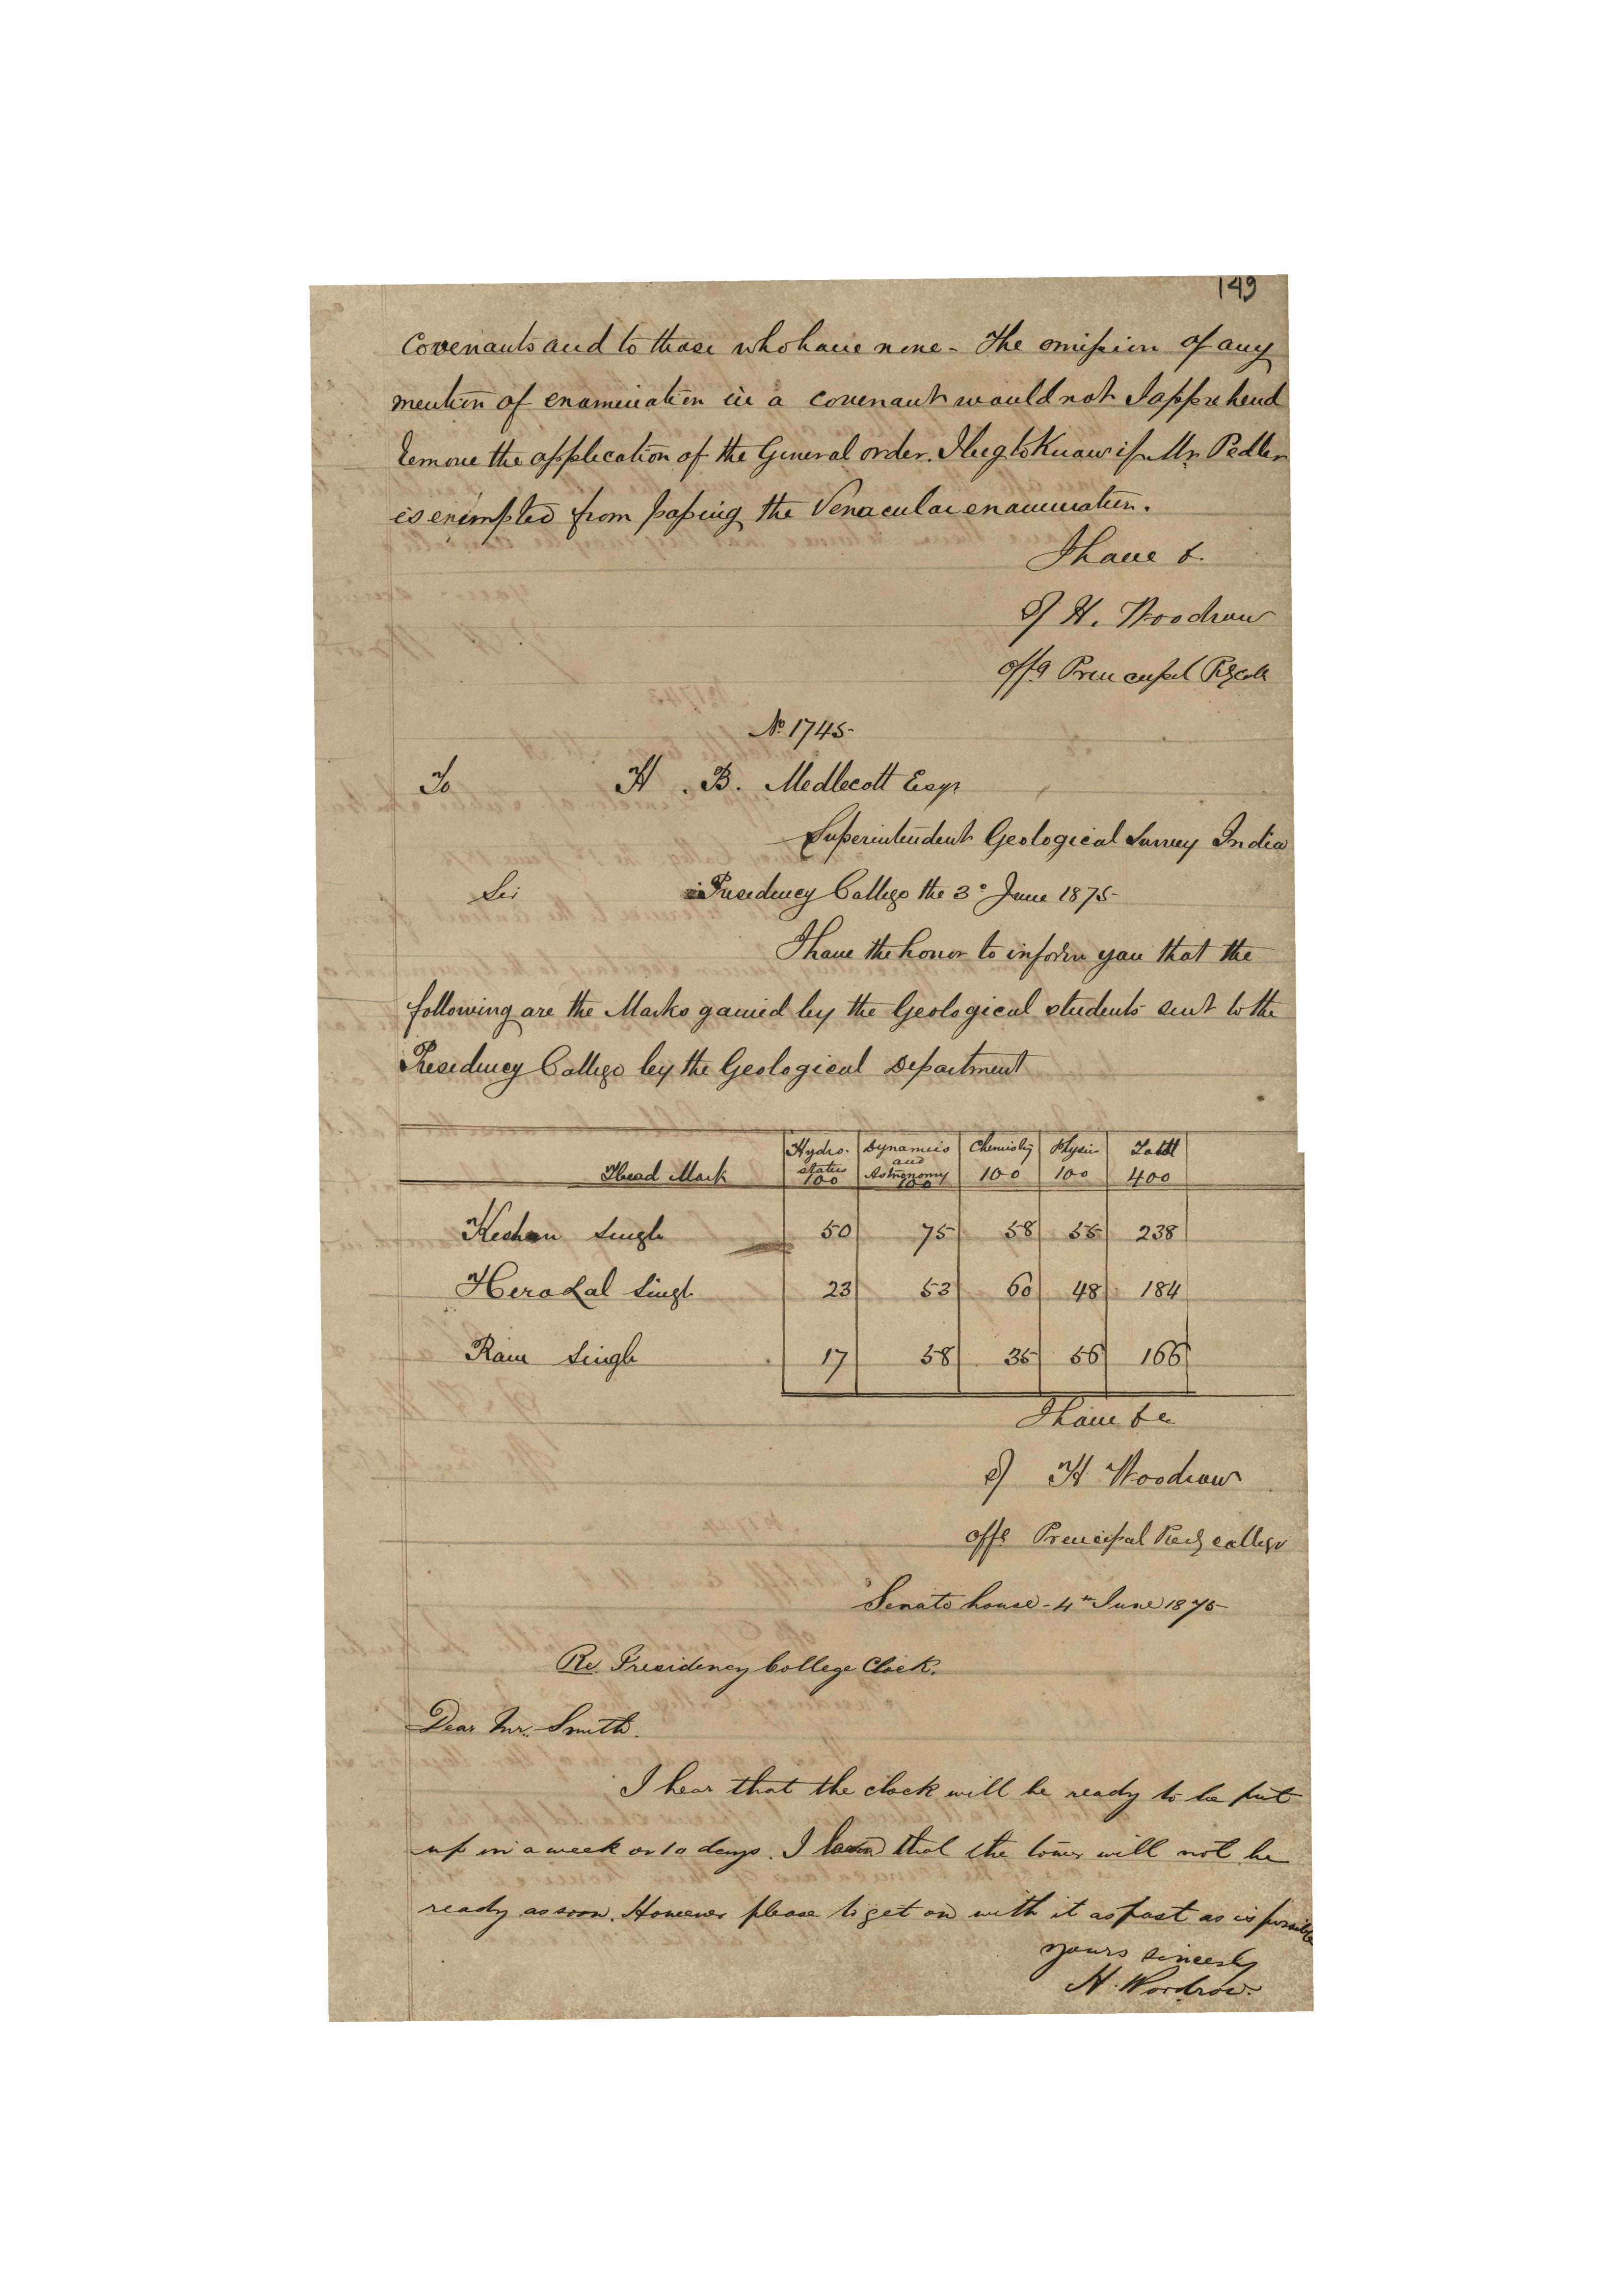 149
Covenants and to those who have none - The omission of any
mention of enamination in a covenant would not I apprehend
remove the application of the General order. I beg to Know if Mr. Pedler
is exempted from passing the Venacular enamination.
I have &
S/ H. Woodrow
Offg Principal
No. 1745
To H. B. Medlecott Esqr
Superintendent Geological Survey India
Sir Presidency College the 3d June 1875
I have the honor to inform you that the
following are the Marks gained by the Geological students sent to the
Presidency College by the Geological Department
Head Mark Hydro-statics 100 Dynamics and Astronomy 100 Chemistry 100 Physic 100 Total 400
Keshan Singh 50 75 58 55 238
Hera Lal Singh 23 53 60 48 184
Ram Singh 17 58 35 56 166
I have &c
S/ H Woodrow
Offg Principal Presy College
Senate house - 4th June 1875
Re. Presidency College Clock.
Dear Mr. Smith.
I hear that the clock will be ready to be put
up in a week or 10 days. I learn that the tower will not be
ready as soon. However please to get on with it as fast as is possible
yours sincerely
H. Woodrow.